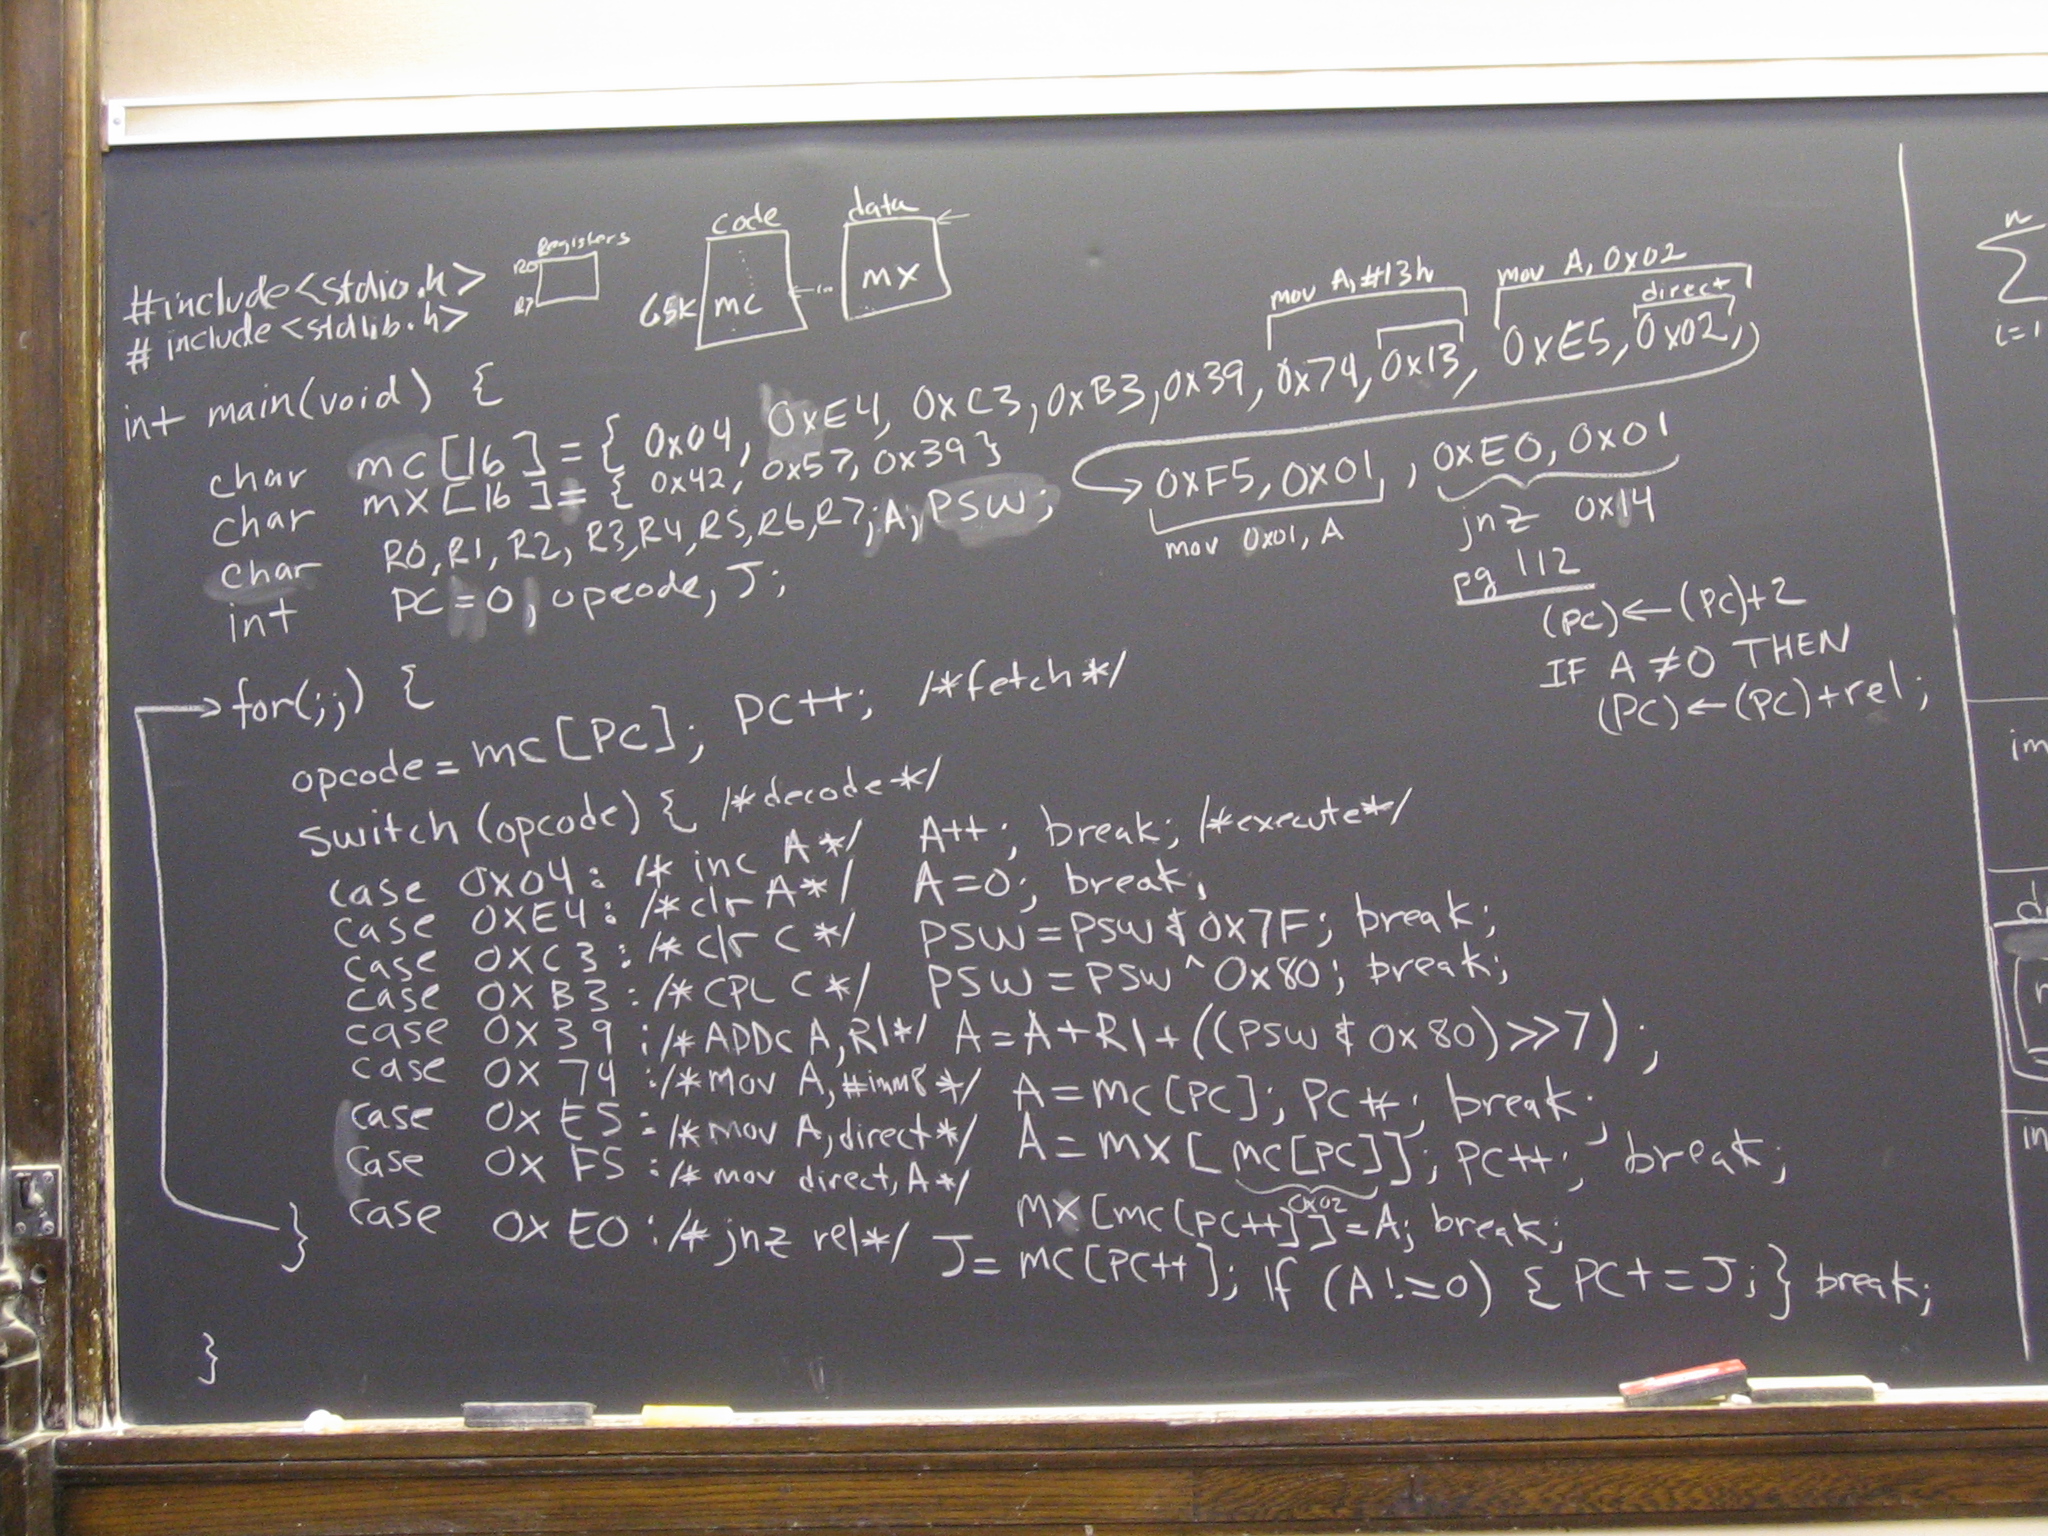 Registers
R0
R7
code
65K mc
data
mx
#include<stdio.h>
#include<stdlib.h>
int main(void) {
mov A,#13h
mov A, 0x02
direct
char mc[16] = { 0x04, 0xE4, 0xC3, 0xB3, 0x39, 0x74, 0x13, 0xE5, 0x02,
0xF5, 0x01, , 0xE0, 0x01
char mx[16] = { 0x42, 0x57, 0x39 }
char R0, R1, R2, R3, R4, R5, R6, R7, A, PSW;
int PC = 0, opcode, J;
mov 0x01, A
jnz 0x14
pg 112
(PC)←(PC)+2
IF A ≠0 THEN
(PC)←(PC)+rel;
for(;;) {
opcode = mc[PC]; PC++; /*fetch*/
switch (opcode) { /*decode*/
case 0x04: /* inc A*/ A++; break; /*execute*/
case 0XE4: /*clr A*/ A=0; break;
case 0XC3: /* clr C */ PSW = PSW & 0x7F; break;
case 0XB3: /* CPL C*/ PSW = PSW ^ 0x80; break;
case 0X39 : /* ADDC A, R1*/ A = A+R1+((PSW & 0x80)>>7) ;
case 0X74 : /*Mov A, #imm8 */ A = mc[PC]; PC++; break;
case 0XE5 : /*mov A, direct*/ A = mx[mc[PC]]; PC++; break;
0x02
case 0XF5 : /* mov direct, A*/ mx[mc[PC++]] = A; break;
case 0XE0 : /* jnz rel*/ J = mc[PC++]; If (A!=0) { PC+=J; } break;
}
}
n
Σ
i=1